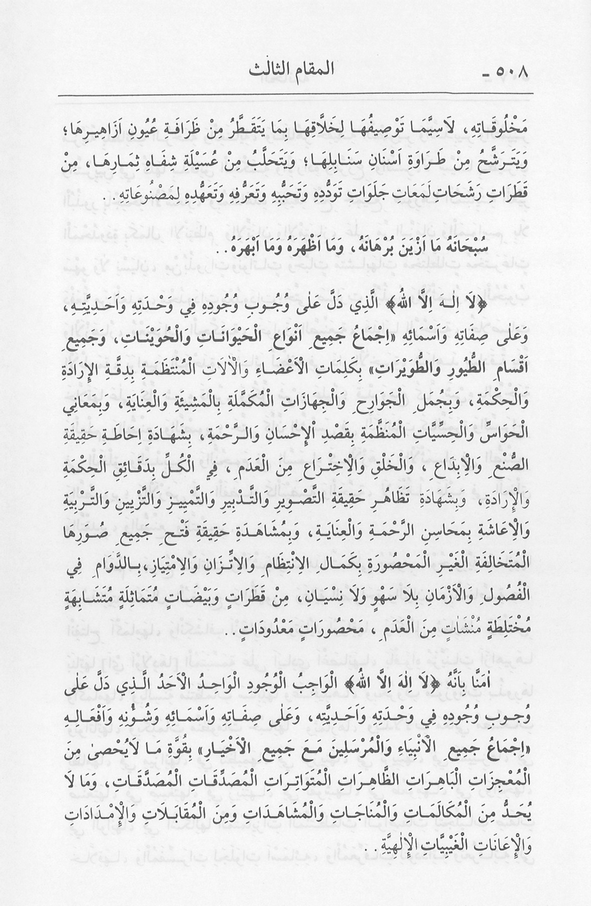 ٥٠٨ ـ المقام الثالث
مَخْلُوقَـاتِهِ، لاَسِيَّمَـا تَوْصِيفُهَـا لِخَلاَّقِهَـا بِمَا يَتَقَـطَّرُ مِنْ ظَرَافَةِ عُيُونِ اَزَاهِيرِهَا؛
وَيَتَرَشَّحُ مِنْ طَرَاوَةِ اَسْنَانِ سَنَابِلِهَـا؛ وَيَتَحَلَّبُ مِنْ عُسَيْلَةِ شِفَاهِ ثِمَارِهَـا، مِنْ
قَطَرَاتِ رَشَحَاتِ لَمَعَاتِ جَلَوَاتِ تَوَدُّدِهِ وَتَحَبُّبِهِ وَتَعَرُّفِهِ وَتَعَهُّدِهِ لِمَصْنُوعَاتِهِ..
سُبْحَانَهُ مَا اَزْيَنَ بُرْهَانَهُ، وَمَا اَظْهَرَهُ وَمَا اَبْهَرَهُ..
﴿لَا اِلٰهَ اِلَّا اللهُ﴾ الَّذِي دَلَّ عَلٰى وُجُـوبِ وُجُودِهِ فِي وَحْدَتِهِ وَاَحَدِيَّتِـهِ،
وَعَلٰى صِفَاتِهِ وَاَسْمَائِهِ «اِجْمَاعُ جَمِيعِ اَنْوَاعِ الْحَيْوَانَاتِ وَالْحُوَيْنَاتِ، وَجَمِيعِ
اَقْسَامِ الطُّيُورِ وَالطُّوَيْرَاتِ» بِكَلِمَاتِ الْاَعْضَـاءِ وَالْاٰلَاتِ الْمُنْتَظَمَـةِ بِدِقَّـةِ الْإِرَادَةِ
وَالْحِكْمَةِ، وَبِجُمَلِ الْجَوَارِحِ وَالْجِهَازَاتِ الْمُكَمَّلَةِ بِالْمَشِيئَةِ وَالْعِنَايَةِ، وَبِمَعَانِي
الْحَوَاسِّ وَالْحِسِّيَّاتِ الْمُنَظَّمَةِ بِقَصْدِ اْلإِحْسَانِ وَالـرَّحْمَةِ، بِشَهَـادَةِ اِحَاطَةِ حَقِيقَةِ
الصُّنْعِ وَالْإِبْدَاعِ، وَالْخَلْقِ وَالْاِخْتِـرَاعِ مِنَ الْعَدَمِ، فِي الْكُلِّ بِدَقَائِقِ الْحِكْمَةِ
وَالْاِرَادَةِ، وَبِشَهَادَةِ تَظَاهُرِ حَقِيقَةِ التَّصْوِيرِ وَالتَّدْبِيرِ وَالتَّمْيِيزِ وَالتَّزْيِينِ وَالتَّـرْبِيَةِ
وَالْاِعَاشَةِ بِمَحَاسِنِ الرَّحْمَةِ وَالْعِنَايَةِ، وَبِمُشَاهَدَةِ حَقِيقَةِ فَتْـحِ جَمِيـعِ صُوَرِهَا
الْمُتَخَالِفَةِ الْغَيْرِ الْمَحْصُورَةِ بِكَمَـالِ الاِنْتِظَامِ وَالاِتِّـزَانِ وَالاِمْتِيَازِ، بِـالدَّوَامِ فِي
الْفُصُولِ وَالْاَزْمَانِ بِلَا سَهْوٍ وَلَا نِسْيَانٍ، مِنْ قَطَرَاتٍ وَبَيْضَـاتٍ مُتَمَاثِلَةٍ مُتَشَـابِهَةٍ
مُخْتَلِطَةٍ مُنْشَاتٍ مِنَ الْعَدَمِ، مَحْصُورَاتٍ مَعْدُودَاتٍ..
اٰمَنَّا بِاَنَّهُ ﴿لَا اِلٰهَ اِلَّا اللهُ﴾ الْوَاجِبُ الْوُجُودِ الْوَاحِدُ الْاَحَدُ الَّـذِي دَلَّ عَلٰى
وُجُـوبِ وُجُودِهِ فِي وَحْدَتِهِ وَاَحَدِيَّتِهِ، وَعَلٰى صِفَاتِهِ وَاَسْمَائِهِ وَشُؤُنِهِ وَاَفْعَالِـهِ
«اِجْمَاعُ جَمِيعِ الْاَنْبِيَاءِ وَالْمُرْسَلِينَ مَـعَ جَمِيعِ الْاَخْيَارِ» بِقُوَّةِ مَا لَايُحْصٰى مِنَ
الْمُعْجِزَاتِ الْبَاهِـرَاتِ الظَّاهِـرَاتِ الْمُتَوَاتِرَاتِ الْمُصَدِّقَـاتِ الْمُصَدَّقَـاتِ، وَمَا لَا
يُحَدُّ مِنَ الْمُكَالَمَاتِ وَالْمُنَاجَاتِ وَالْمُشَاهَدَاتِ وَمِنَ الْمُقَابَلَاتِ وَالْاِمْدَادَاتِ
وَالْاِعَانَاتِ الْغَيْبِيَّاتِ الْاِلٰهِيَّةِ..